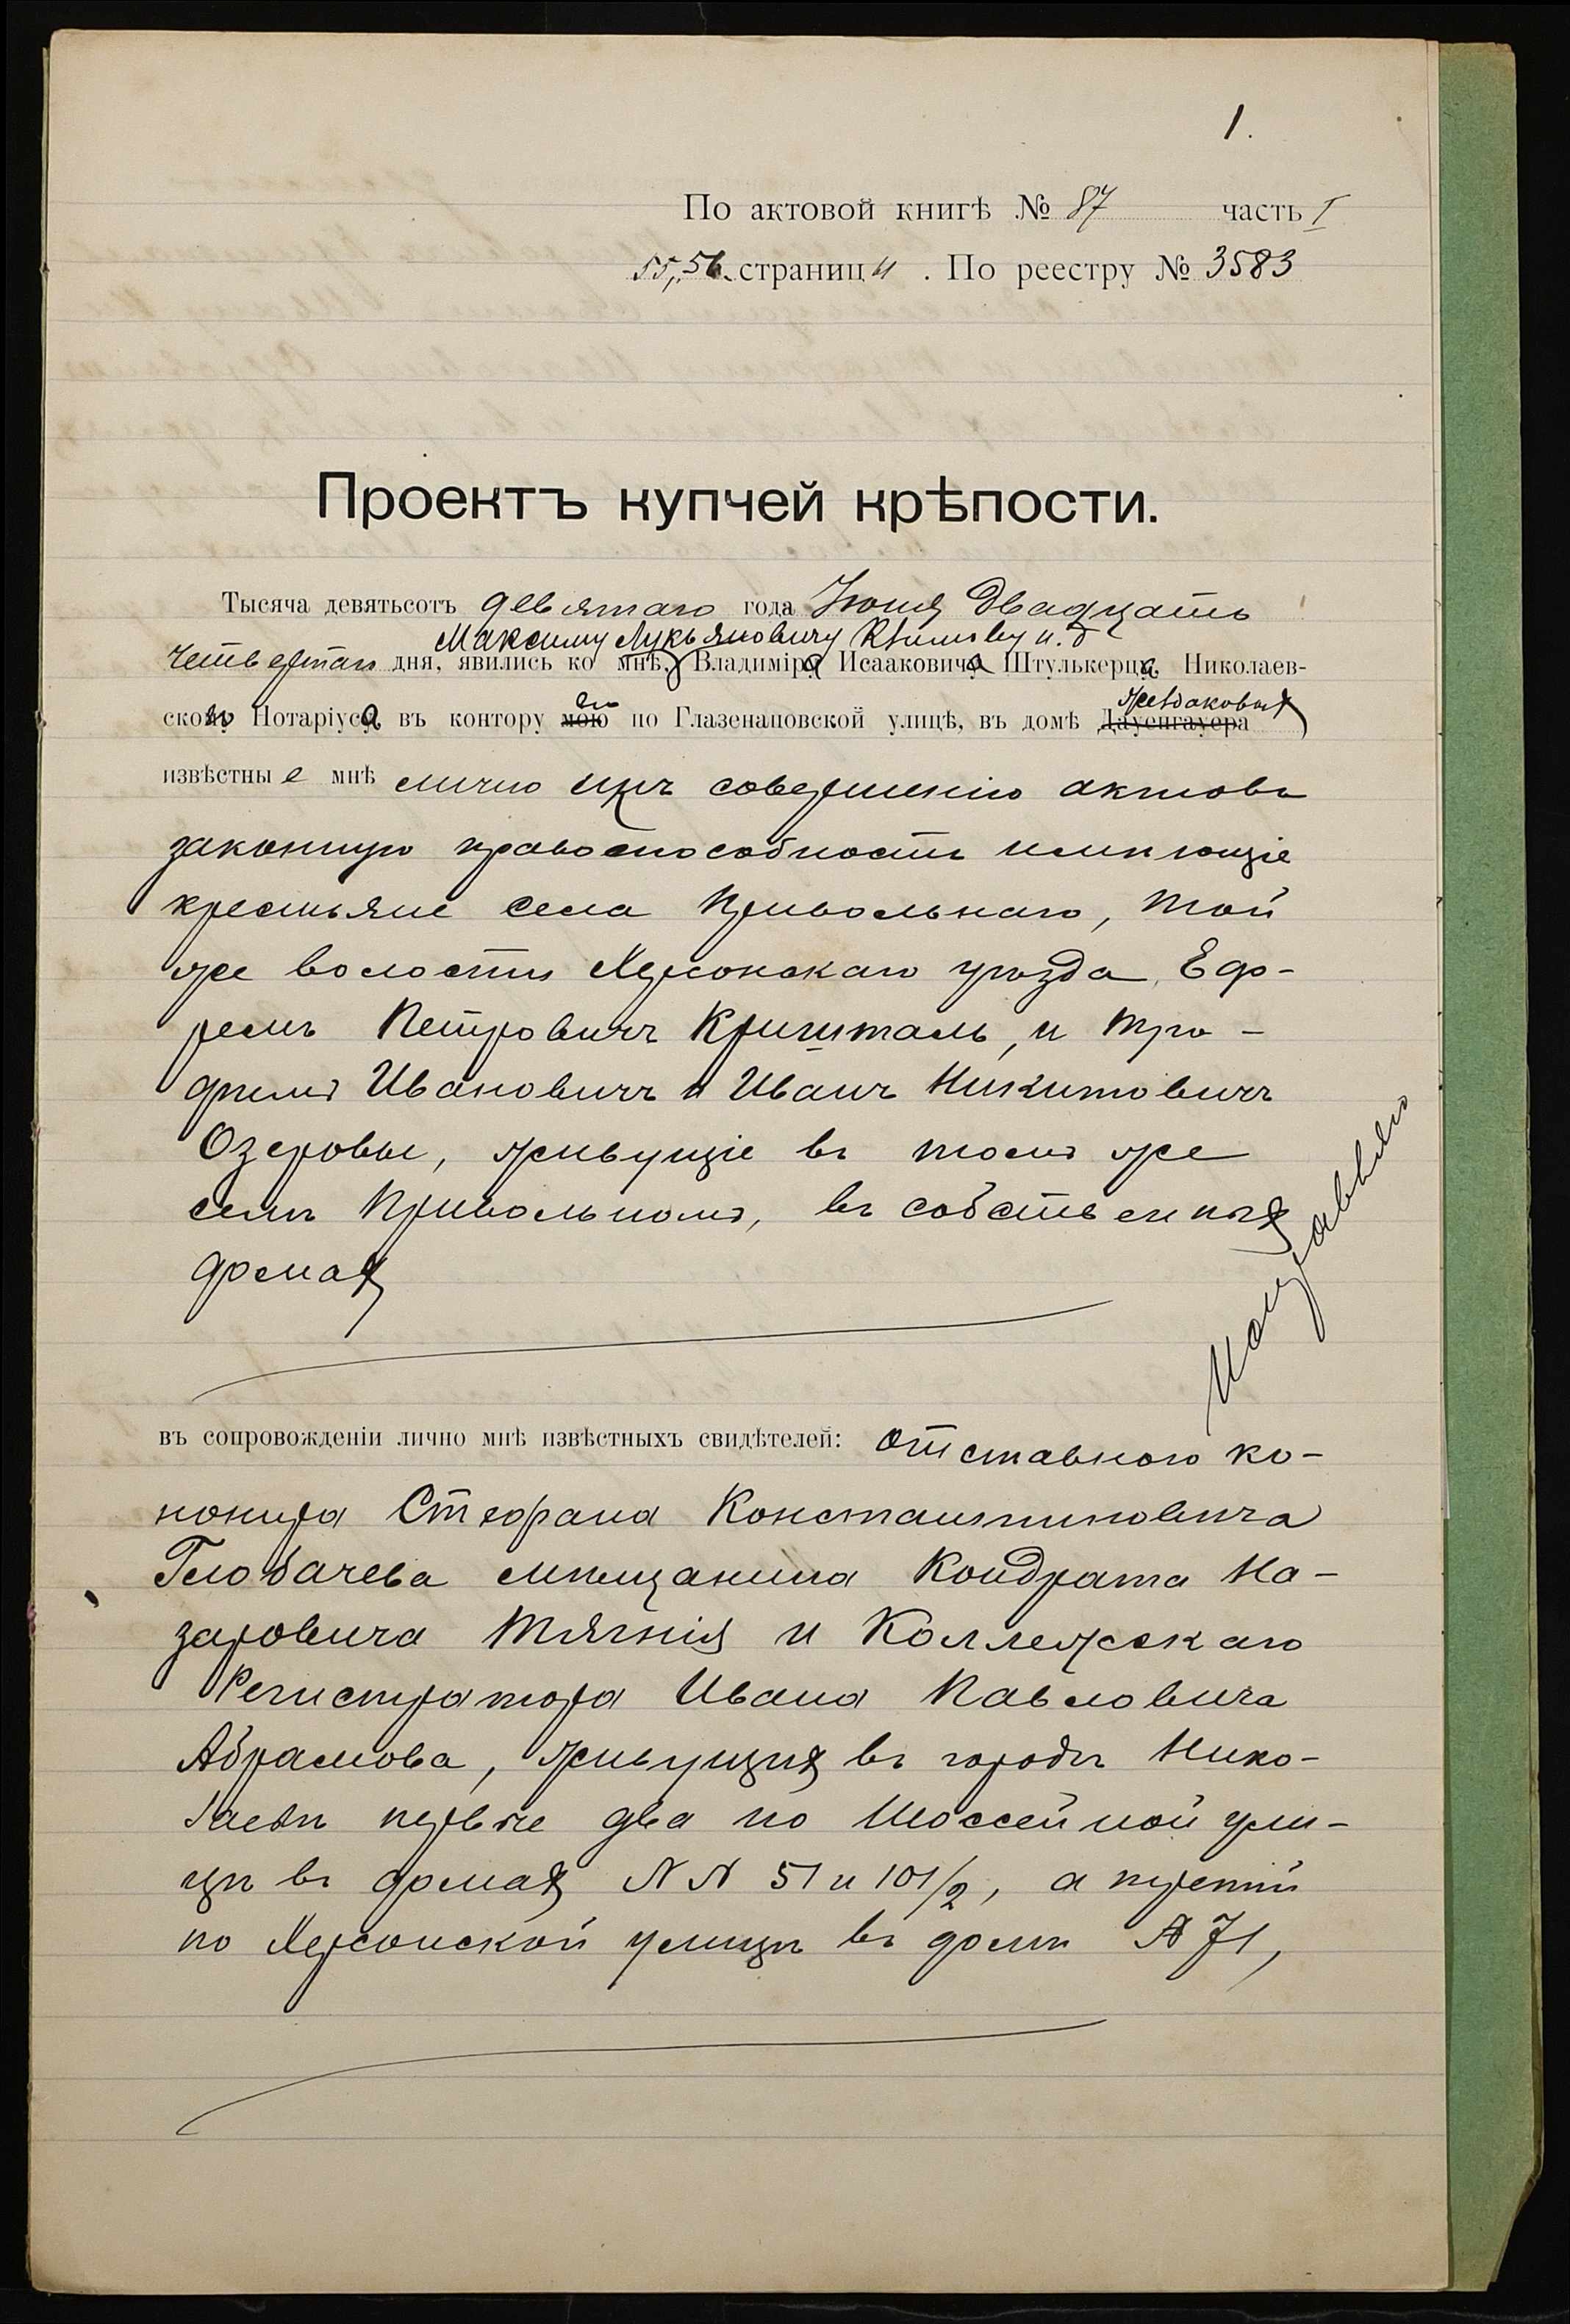 1.
По актовой книгѣ № 87 часть I
55, 56 страницы. По реестру № 3583
Проектъ купчей крѣпости.
Тысяча девятьсотъ девятаго года Іюня двадцать
Максиму Лукьяновичу Климову и. д.
четвертаго дня, явились ко мнѣ, Владиміра Исааковича Штулькерца, Николаев-
его Жевдаковыхъ
скаго Нотаріуса, въ контору мою по Глазенаповской улицѣ, въ домѣ Даусигауера
извѣстные мнѣ лично и къ совершенію актовъ
законную правоспособность имѣющіе
крестьяне села Привольнаго, той
же волости Херсонскаго уѣзда, Еф-
ремъ Петровичъ Кришталь, и Тро-
фимъ Ивановичъ и Иванъ Никитовичъ
Озеровы, живущіе въ томъ же
селѣ Привольномъ, въ собственныхъ
домахъ
въ сопровожденіи лично мнѣ извѣстныхъ свидѣтелей: отставного ко-
нонира Стефана Константиновича
Глобачева мѣщанина Кондрата На-
заровича Тягнія и Коллежскаго
Регистратора Ивана Павловича
Абрамова, живущихъ въ городѣ Нико-
лаевѣ первые два по Шоссейной ули-
цѣ въ домахъ N N 51 и 101/2, а третій
по Херсонской улицѣ въ домѣ № 71,